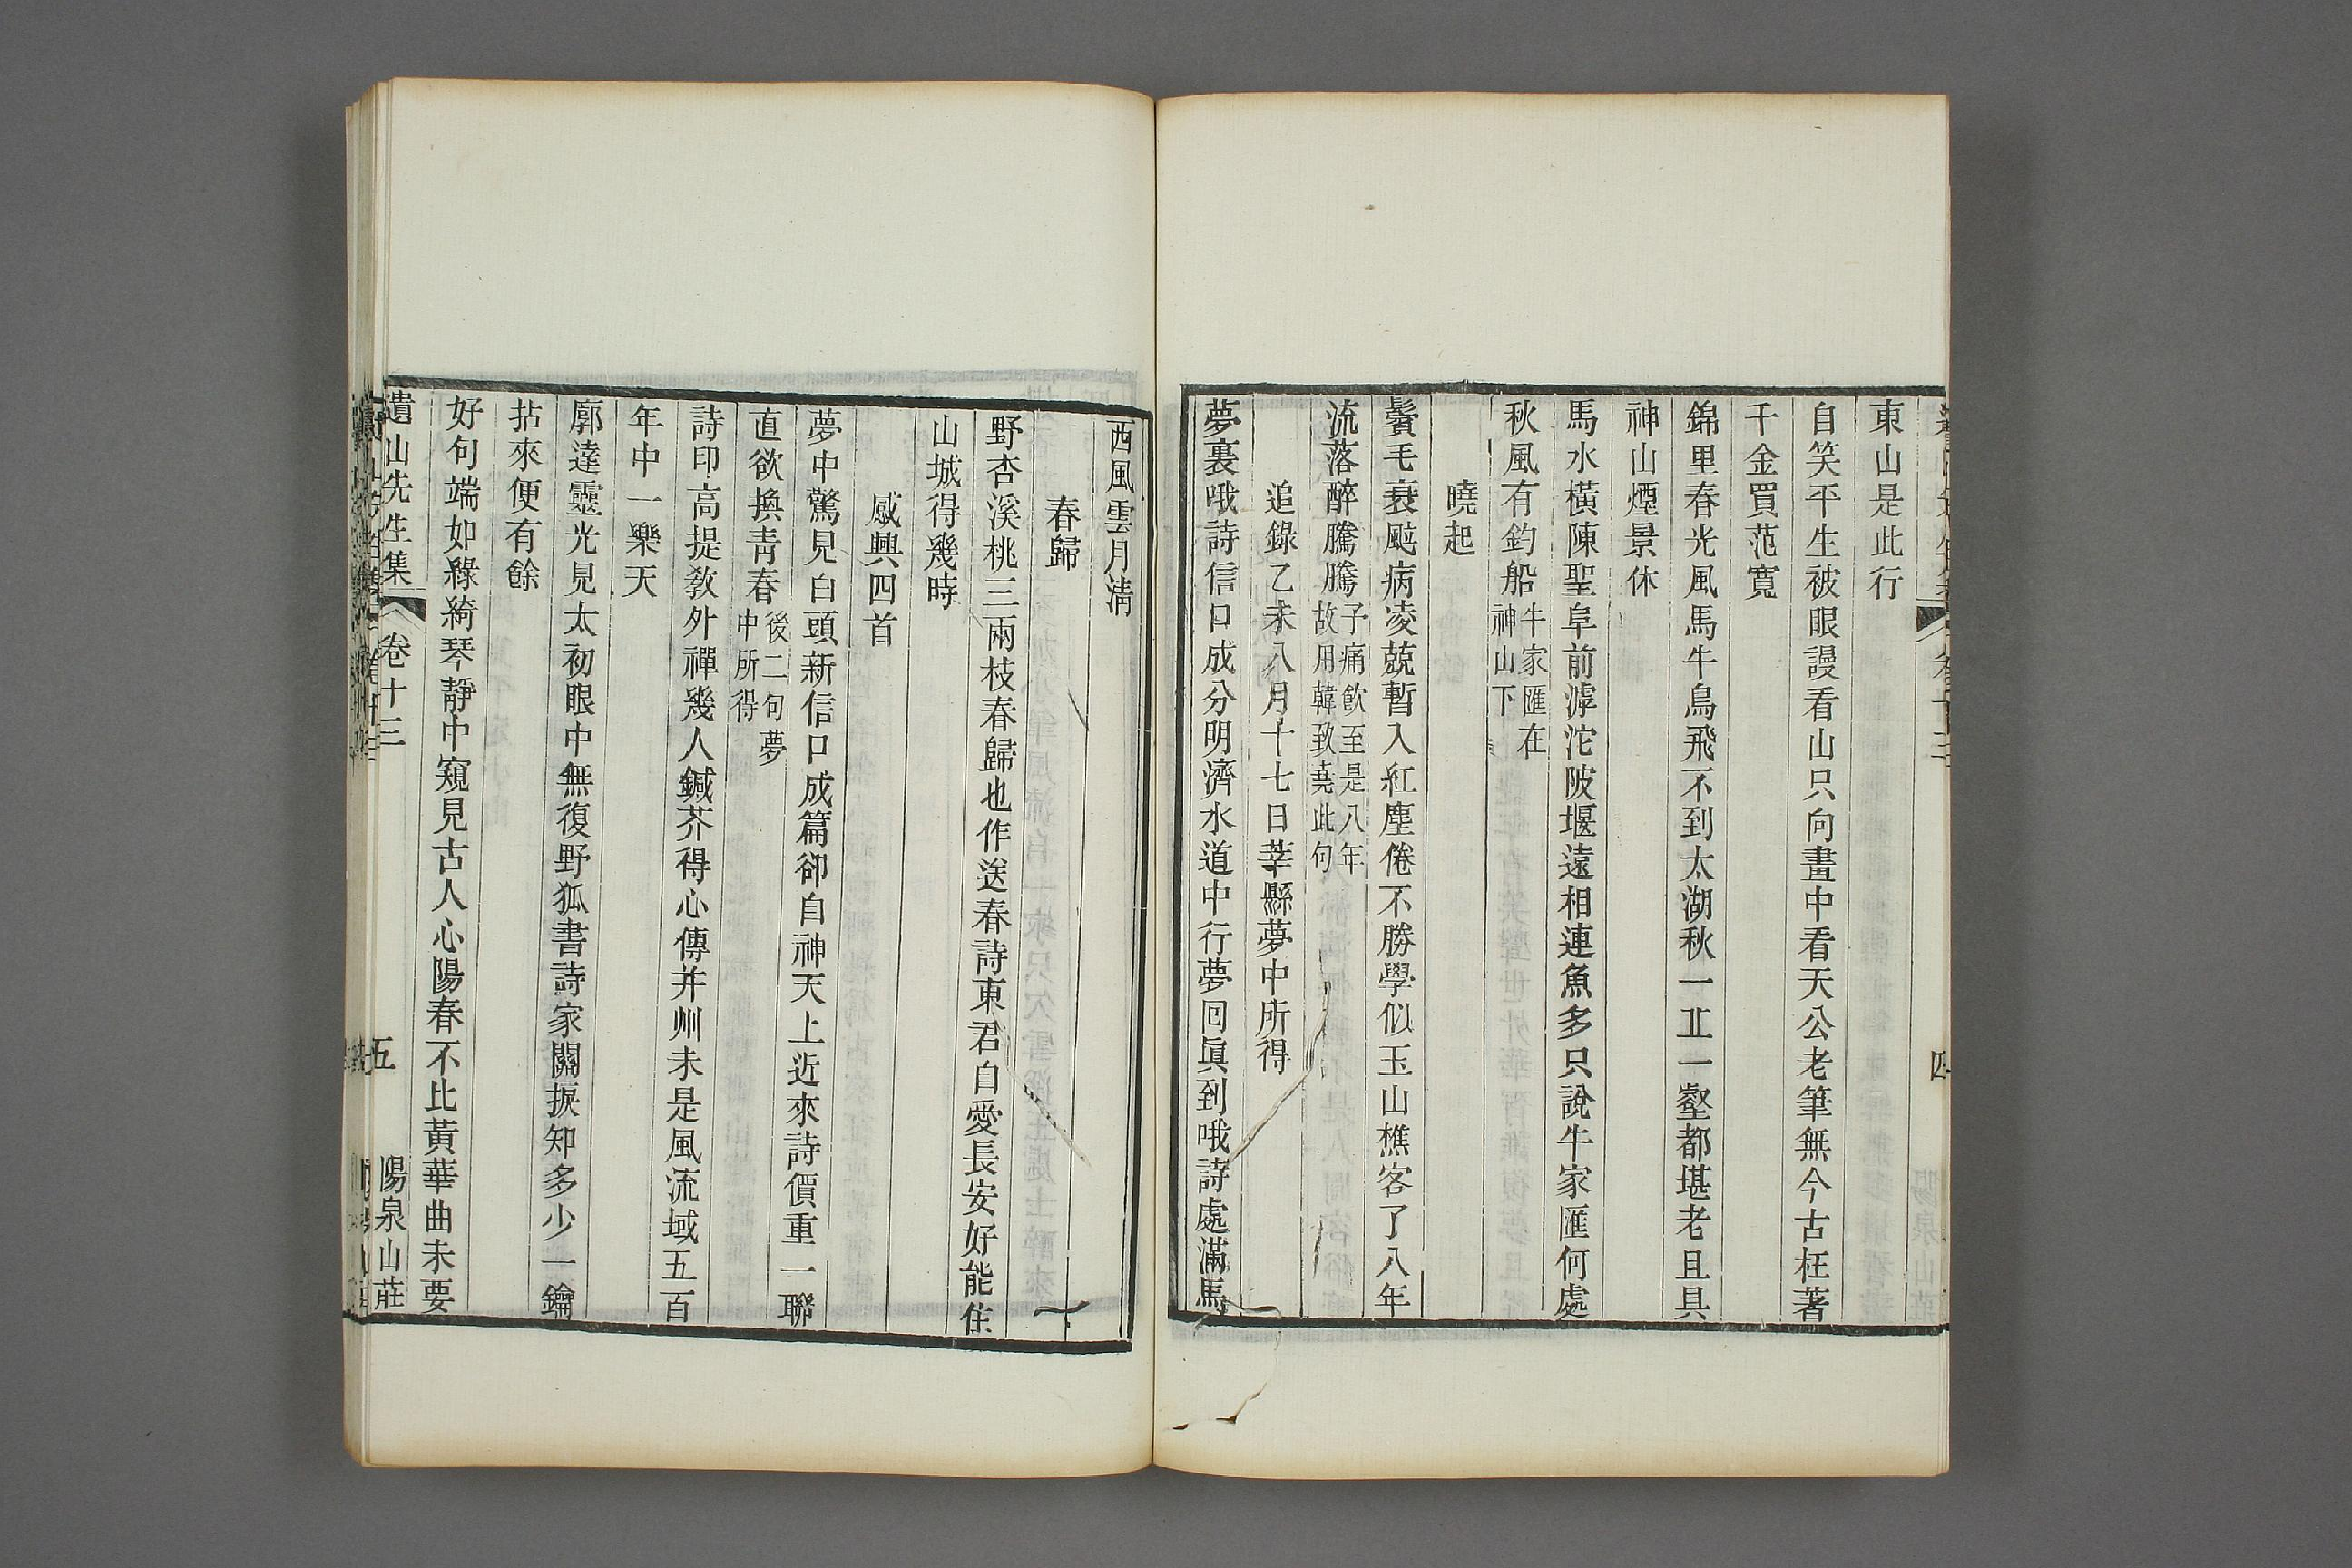 東山是此行
自笑平生被眼謾看山只向畫中看天公老筆無今古枉著
千金買范寬
錦里春光風馬牛鳥飛不到太湖秋一丘一壑都堪老且具
神山煙景休
馬水橫陳聖阜前滹沱陂堰遠相連魚多只說牛家匯何處
秋風有釣船牛家匯在神山下
曉起
鬢毛衰颭病凌兢暫入紅塵倦不勝學似玉山樵客了八年
流落醉騰騰予痛飲至是八年故用韓致堯此句
追錄乙未八月十七日莘縣夢中所得
夢裏哦詩信口成分明濟水道中行夢回眞到哦詩處滿馬
西風雲月淸
春歸
野杏溪桃三兩枝春歸也作送春詩東君自愛長安好能住
山城得幾時
感興四首
夢中驚見白頭新信口成篇卻自神天上近來詩價重一聯
直欲換靑春後二句夢中所得
詩印高提敎外禪幾人鍼芥得心傳并州未是風流域五百
年中一樂天
廓達靈光見太初眼中無復野狐書詩家關捩知多少一鑰
拈來便有餘
好句端如綠綺琴靜中窺見古人心陽春不比黃華曲未要
遺山先生集 卷十三 五 陽泉山莊